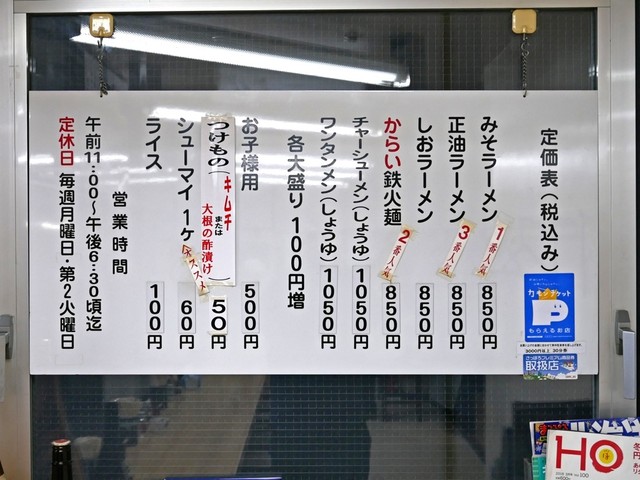 定価表(税込み)
みそラーメン 850円
1番人気
正油ラーメン 850円
3番人気
しおラーメン 850円
からい鉄火麺 850円
2番人気
チャーシューメン(しょうゆ) 1050円
ワンタンメン(しょうゆ) 1050円
各大盛り 100円増
お子様用 500円
つけもの(キムチ または 大根の酢漬け) 50円
シューマイ 1ヶ 60円
オススメ
ライス 100円
営業時間
午前11:00〜午後6:30頃迄
定休日 毎週月曜日・第2火曜日
もらえるお店
3000円以上 30分券
さっぽろプレミアム商品券
取扱店
HO